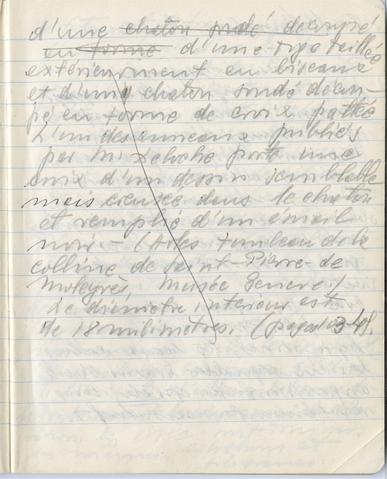 d'une chaton soudé découpé
en forme d'une tige taillée
extérieurment en biseaux
et d'une chaton soudé décou-
pé en forme de croix pattée
L'un des anneaux publiés
par M. Deloche porte une
croix d'un dessin semblable
mais creusée dans le chaton
et remplie d'un émail
noir. - (Arles tombeau de la
colline de Saint-Pierre-de
Moleyrès, musée
Le diamètre intérieur est
de 18 milimètres. (pages 348).